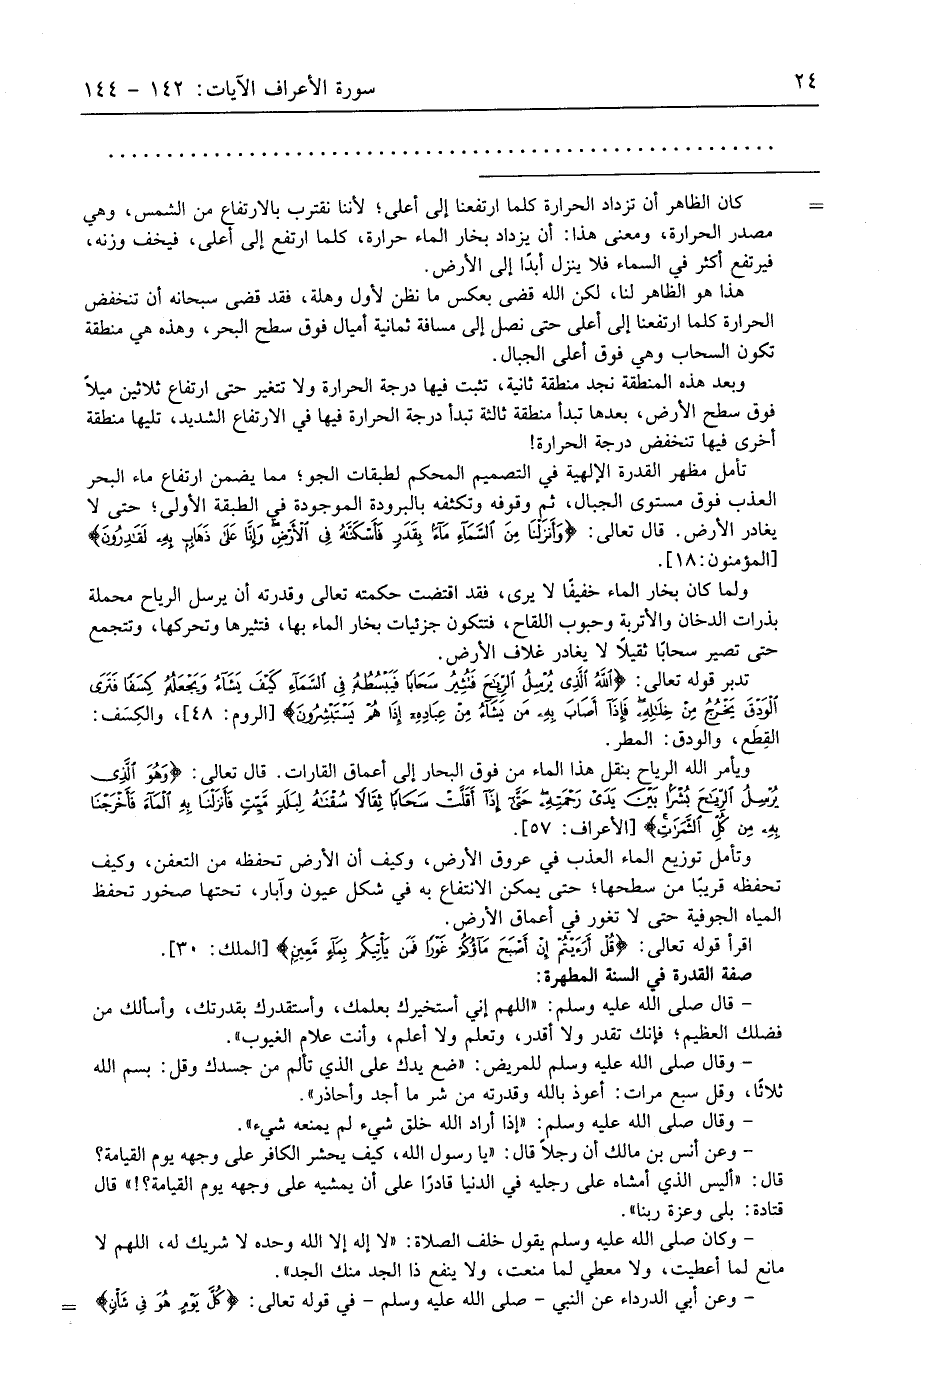 ٢٤
سورة الأعراف الآيات: ١٤٢ - ١٤٤
= كان الظاهر أن تزداد الحرارة كلما ارتفعنا إلى أعلى؛ لأننا نقترب بالارتفاع من الشمس، وهي
مصدر الحرارة، ومعنى هذا: أن يزداد بخار الماء حرارة، كلما ارتفع إلى أعلى، فيخف وزنه،
فيرتفع أكثر في السماء فلا ينزل أبدًا إلى الأرض.
هذا هو الظاهر لنا، لكن الله قضى بعكس ما نظن لأول وهلة، فقد قضى سبحانه أن تنخفض
الحرارة كلما ارتفعنا إلى أعلى حتى نصل إلى مسافة ثمانية أميال فوق سطح البحر، وهذه هي منطقة
تكون السحاب وهي فوق أعلى الجبال.
وبعد هذه المنطقة نجد منطقة ثانية، تثبت فيها درجة الحرارة ولا تتغير حتى ارتفاع ثلاثين ميلاً
فوق سطح الأرض، بعدها تبدأ منطقة ثالثة تبدأ درجة الحرارة فيها في الارتفاع الشديد، تليها منطقة
أخرى فيها تنخفض درجة الحرارة!
تأمل مظهر القدرة الإلهية في التصميم المحكم لطبقات الجو؛ مما يضمن ارتفاع ماء البحر
العذب فوق مستوى الجبال، ثم وقوفه وتكثفه بالبرودة الموجودة في الطبقة الأولى؛ حتى لا
يغادر الأرض. قال تعالى: ﴿وَأَنزَلْنَا مِنَ ٱلسَّمَآءِ مَآءًۢ بِقَدَرٍ فَأَسْكَنَّٰهُ فِى ٱلْأَرْضِۖ وَإِنَّا عَلَىٰ ذَهَابٍۭ بِهِۦ لَقَٰدِرُونَ﴾
[المؤمنون:١٨].
ولما كان بخار الماء خفيفًا لا يرى، فقد اقتضت حكمته تعالى وقدرته أن يرسل الرياح محملة
بذرات الدخان والأتربة وحبوب اللقاح، فتتكون جزئيات بخار الماء بها، فتثيرها وتحركها، وتتجمع
حتى تصير سحابًا ثقيلاً لا يغادر غلاف الأرض.
تدبر قوله تعالى: ﴿ٱللَّهُ ٱلَّذِى يُرْسِلُ ٱلرِّيَٰحَ فَتُثِيرُ سَحَابًا فَيَبْسُطُهُۥ فِى ٱلسَّمَآءِ كَيْفَ يَشَآءُ وَيَجْعَلُهُۥ كِسَفًا فَتَرَى
ٱلْوَدْقَ يَخْرُجُ مِنْ خِلَٰلِهِۦۖ فَإِذَآ أَصَابَ بِهِۦ مَن يَشَآءُ مِنْ عِبَادِهِۦٓ إِذَا هُمْ يَسْتَبْشِرُونَ﴾ [الروم: ٤٨]، والكِسَف:
القِطَع، والودق: المطر.
ويأمر الله الرياح بنقل هذا الماء من فوق البحار إلى أعماق القارات. قال تعالى: ﴿وَهُوَ ٱلَّذِى
يُرْسِلُ ٱلرِّيَٰحَ بُشْرًۢا بَيْنَ يَدَىْ رَحْمَتِهِۦۖ حَتَّىٰٓ إِذَآ أَقَلَّتْ سَحَابًا ثِقَالًا سُقْنَٰهُ لِبَلَدٍ مَّيِّتٍ فَأَنزَلْنَا بِهِ ٱلْمَآءَ فَأَخْرَجْنَا
بِهِۦ مِن كُلِّ ٱلثَّمَرَٰتِۚ﴾ [الأعراف: ٥٧].
وتأمل توزيع الماء العذب في عروق الأرض، وكيف أن الأرض تحفظه من التعفن، وكيف
تحفظه قريبًا من سطحها؛ حتى يمكن الانتفاع به في شكل عيون وآبار، تحتها صخور تحفظ
المياه الجوفية حتى لا تغور في أعماق الأرض.
اقرأ قوله تعالى: ﴿قُلْ أَرَءَيْتُمْ إِنْ أَصْبَحَ مَآؤُكُمْ غَوْرًا فَمَن يَأْتِيكُم بِمَآءٍ مَّعِينٍۭ﴾ [الملك: ٣٠].
صفة القدرة في السنة المطهرة:
- قال صلى الله عليه وسلم: «اللهم إني أستخيرك بعلمك، وأستقدرك بقدرتك، وأسألك من
فضلك العظيم؛ فإنك تقدر ولا أقدر، وتعلم ولا أعلم، وأنت علام الغيوب».
- وقال صلى الله عليه وسلم للمريض: «ضع يدك على الذي تألم من جسدك وقل: بسم الله
ثلاثًا، وقل سبع مرات: أعوذ بالله وقدرته من شر ما أجد وأحاذر».
- وقال صلى الله عليه وسلم: «إذا أراد الله خلق شيء لم يمنعه شيء».
- وعن أنس بن مالك أن رجلاً قال: «يا رسول الله، كيف يحشر الكافر على وجهه يوم القيامة؟
قال: «أليس الذي أمشاه على رجليه في الدنيا قادرًا على أن يمشيه على وجهه يوم القيامة؟!» قال
قتادة: بلى وعزة ربنا».
- وكان صلى الله عليه وسلم يقول خلف الصلاة: «لا إله إلا الله وحده لا شريك له، اللهم لا
مانع لما أعطيت، ولا معطي لما منعت، ولا ينفع ذا الجد منك الجد».
- وعن أبي الدرداء عن النبي - صلى الله عليه وسلم - في قوله تعالى: ﴿كُلَّ يَوْمٍ هُوَ فِى شَأْنٍ﴾ =